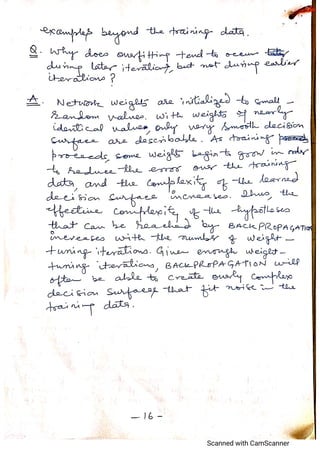 examples beyond the training data.
Q. Why does overfitting tend to occur
during later iterations, but not during earlier
iterations?
A. Network weights are initialized to small
random values. With weights of nearly
identical values, only very smooth decision
surface are describable. As training
proceeds, some weights begin to grow in order
to reduce the error over the training
data, and the complexity of the learned
decision surface increases. Thus, the
effective complexity of the hypotheses
that can be reached by BACKPROPAGATION
increases with the number of weight-
tuning iterations. Given enough weight-
tuning iterations, BACKPROPAGATION will
often be able to create overly complex
decision surfaces that fit noise in the
training data.
- 16 -
Scanned with CamScanner